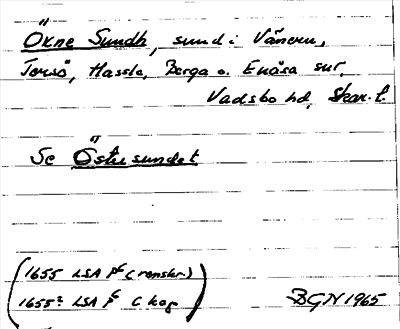 Ökne Sundh, sund i Vänern,
Torsö, Hassle, Berga o. Enåsa snr,
Vadsbo hd, Skar. l.
Se Östersundet
(1655 LSA P (renskr.)
1655? LSA P C kog)
BGN 1965